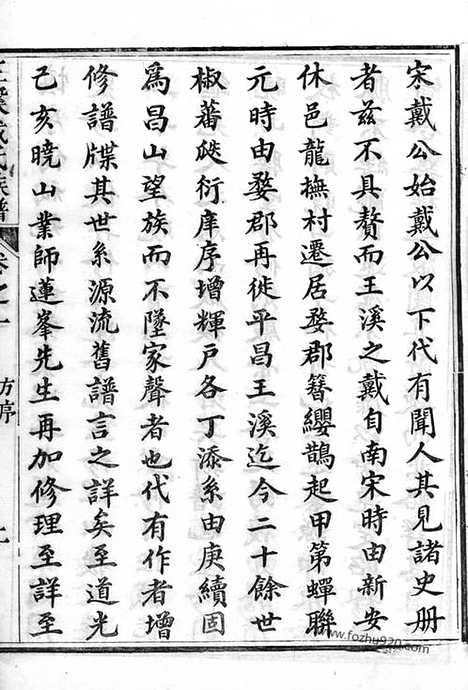 宋戴公始戴公以下代有聞人其見諸史册
者兹不具贅而王溪之戴自南宋時由新安
休邑龍撫村遷居婺郡簪纓鵲起甲第蟬聯
元時由婺郡再徙平昌王溪迄今二十餘世
椒蕃瓞衍庠序增輝戸各丁添系由庚續固
爲昌山望族而不墜家聲者也代有作者增
修譜牒其世系源流舊譜言之詳矣至道光
己亥曉山業師蓮峯先生再加修理至詳至
王溪戴氏族譜
卷之一
方序
上
www.fozhu920.com